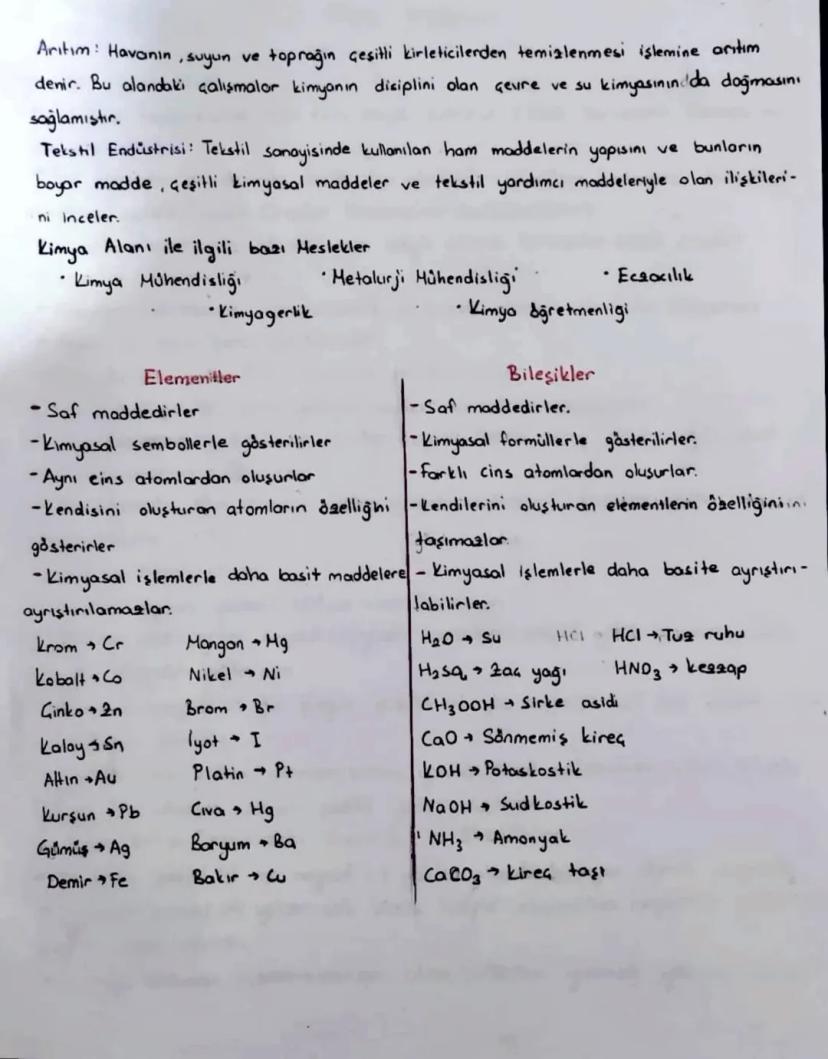 Arıtım: Havanın, suyun ve toprağın çeşitli kirleticilerden temizlenmesi işlemine arıtım
denir. Bu alandaki çalışmalar kimyanın disiplini olan çevre ve su kimyasının da doğmasını
sağlamıştır.
Tekstil Endüstrisi: Tekstil sanayisinde kullanılan ham maddelerin yapısını ve bunların
boyar madde, çeşitli kimyasal maddeler ve tekstil yardımcı maddeleriyle olan ilişkileri-
ni inceler.
Kimya Alanı ile ilgili bazı Meslekler
• Kimya Mühendisliği • Metalurji Mühendisliği • Eczacılık
• Kimyagerlik • Kimya öğretmenligi
Elementler Bileşikler
- Saf maddedirler
- Saf maddedirler.
- Kimyasal sembollerle gösterilirler
- Kimyasal formüllerle gösterilirler.
- Aynı cins atomlardan oluşurlar
- Farklı cins atomlardan oluşurlar.
- Kendisini oluşturan atomların özelliğni
gösterirler
- Kendilerini oluşturan elementlerin özelliğini
taşımazlar.
- Kimyasal işlemlerle daha basit maddelere
ayrıştırılamazlar.
- Kimyasal işlemlerle daha basite ayrıştırı-
labilirler.
Krom → Cr Mangan → Mg H₂O → Su HCl HCl → Tuz ruhu
Kobalt → Co Nikel → Ni H₂SO₄ → Zaç yağı HNO₃ → kezzap
Çinko → Zn Brom → Br CH₃OOH → Sirke asidi
Kalay → Sn İyot → I CaO → Sönmemiş kireç
Altın → Au Platin → Pt KOH → Potaskostik
Kurşun → Pb Cıva → Hg NaOH → Sudkostik
Gümüş → Ag Baryum → Ba NH₃ → Amonyak
Demir → Fe Bakır → Cu CaCO₃ → kireç taşı